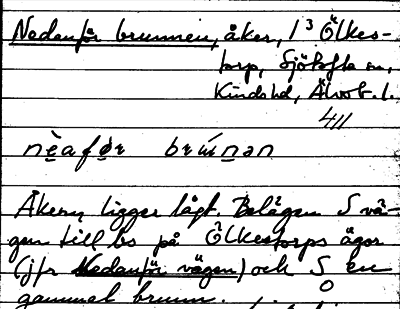 Nedanför brunnen, åker, 1 3 Ölkes-
torp, Sjötofta sn,
Kinds hd, Älvsb. l.
411
nèafør brúnan
Åkern ligger lågt. Belägen S vä-
gen till bs på Ölkestorps ägor
(jfr Nedanför vägen) och S en
gammal brunn.